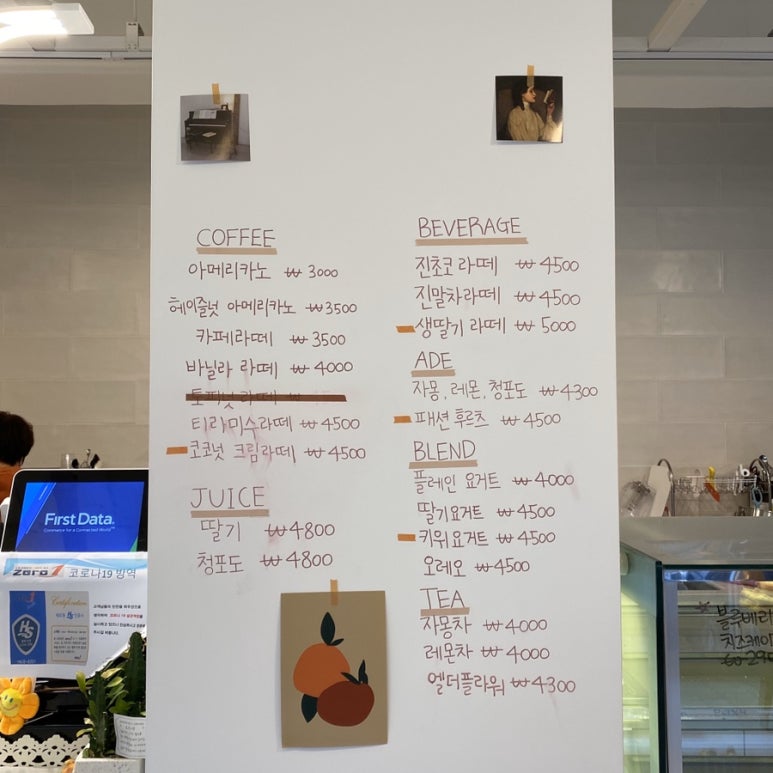 COFFEE
아메리카노 ₩3000
헤이즐넛 아메리카노 ₩3500
카페라떼 ₩3500
바닐라 라떼 ₩4000
토피넛 라떼
티라미수라떼 ₩4500
코코넛 크림라떼 ₩4500
JUICE
딸기 ₩4800
청포도 ₩4800
BEVERAGE
진초코 라떼 ₩4500
진말차라떼 ₩4500
생딸기 라떼 ₩5000
ADE
자몽, 레몬, 청포도 ₩4300
패션후르츠 ₩4500
BLEND
플레인 요거트 ₩4000
딸기요거트 ₩4500
키위요거트 ₩4500
오레오 ₩4500
TEA
자몽차 ₩4000
레몬차 ₩4000
엘더플라워 ₩4300
First Data.
Zero 7 코로나19 방역
Certification
HS
블루베리